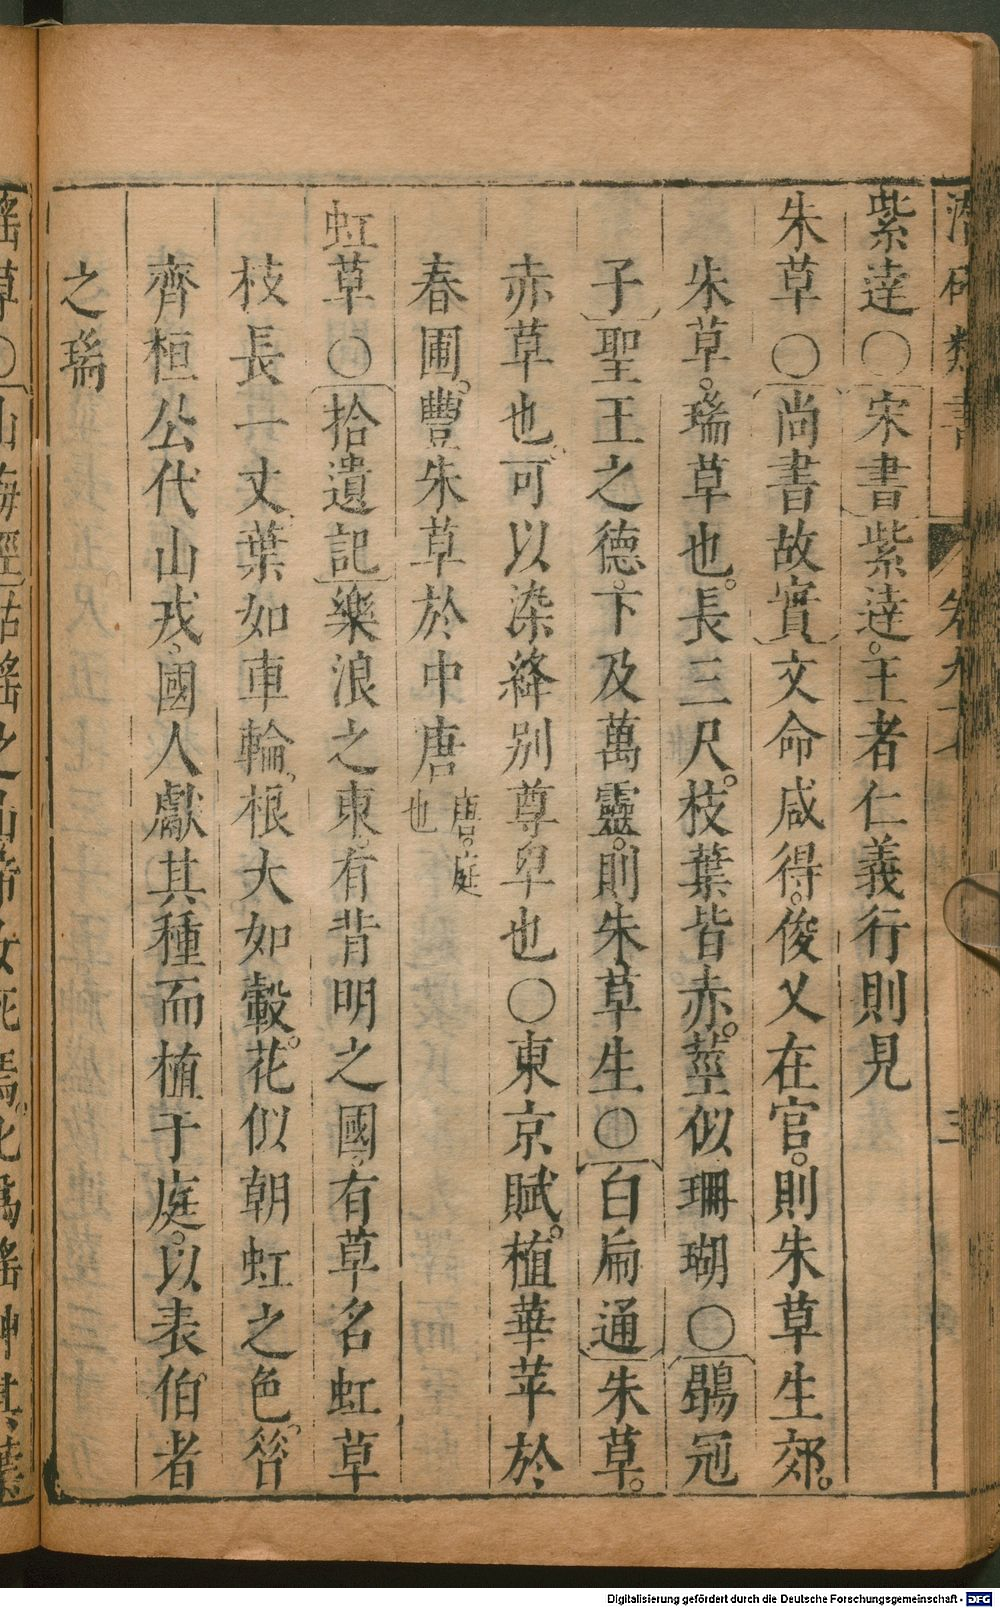 潛確類書 卷九十 三
紫達○宋書紫達王者仁義行則見
朱草○尚書故實文命咸得俊乂在官則朱草生郊
朱草瑞草也長三尺枝葉皆赤莖似珊瑚○鶡冠
子聖王之德下及萬靈則朱草生○白扁通朱草
赤草也可以染絳別尊卑也○東京賦植華苹於
春圃豐朱草於中唐唐庭也
虹草○拾遺記樂浪之東有背明之國有草名虹草
枝長一丈葉如車輪根大如轂花似朝虹之色答
齊桓公伐山戎國人獻其種而植于庭以表伯者
之瑞
瑤草○山海經姑瑤之山帝女死焉化爲瑤神其葉
Digitalisierung gefördert durch die Deutsche Forschungsgemeinschaft - DFG